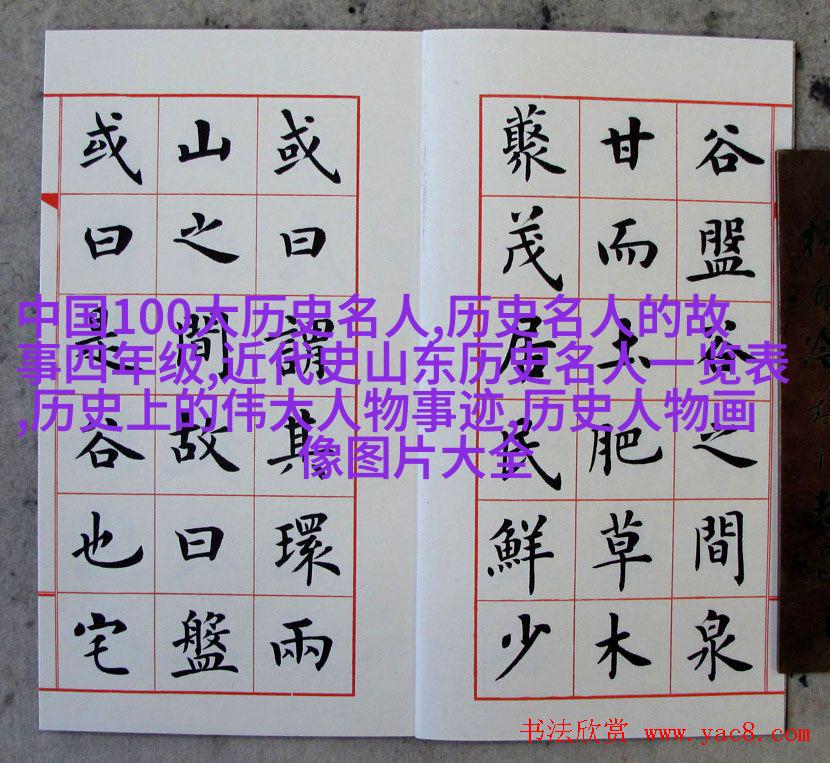 谷盤谷之間泉
甘而土肥草木
藂茂居民鮮少
或曰謂其環兩
山之間故曰盤
或曰是谷也宅
中国100大历史名人,历史名人的故
事四年级,近代史山东历史名人一览表
,历史上的伟大人物事迹,历史人物画
像图片大全
书法欣赏 www.yac8.com